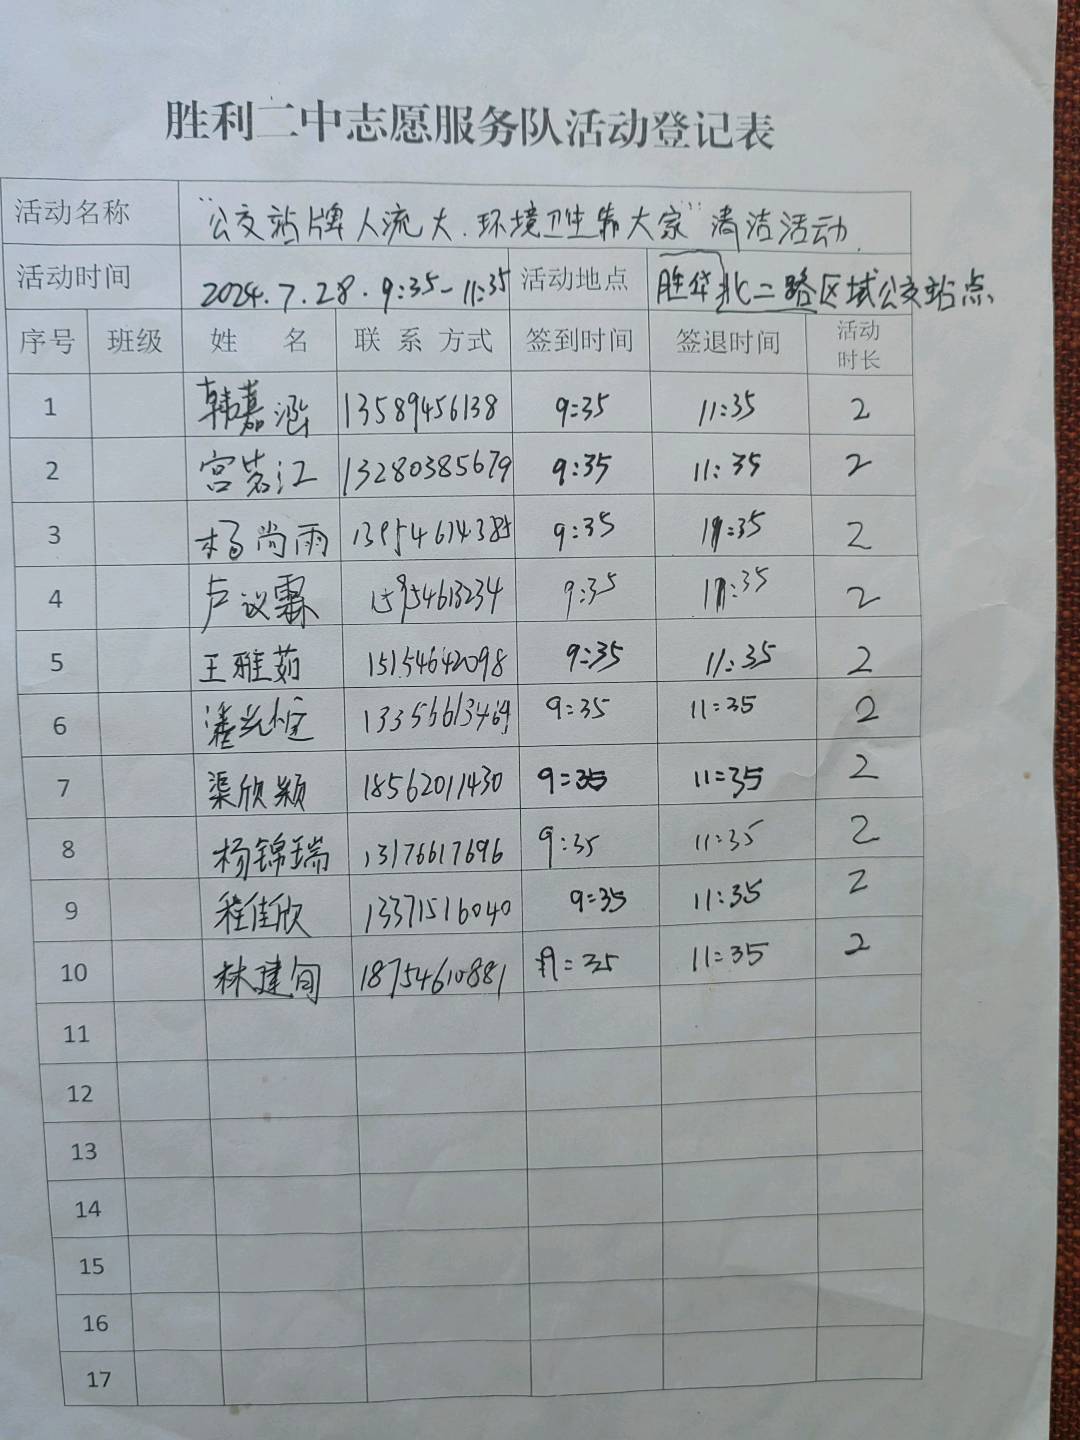 胜利二中志愿服务队活动登记表
活动名称 "公交站牌人流大.环境卫生靠大家"清洁活动.
活动时间 2024.7.28.9:35-11:35 活动地点 胜华北二路区域公交站点
序号 班级 姓 名 联 系 方式 签到时间 签退时间 活动时长
1 韩嘉涵 13589456138 9:35 11:35 2
2 宫茗江 13280385679 9:35 11:35 2
3 杨尚雨 13954614385 9:35 11:35 2
4 卢议霖 15954613234 9:35 11:35 2
5 王雅茹 15154642098 9:35 11:35 2
6 13356613469 9:35 11:35 2
7 渠欣颖 18562011430 9:35 11:35 2
8 杨锦瑞 13176617696 9:35 11:35 2
9 程佳欣 13371516040 9:35 11:35 2
10 林建旬 18754610881 9:35 11:35 2
11
12
13
14
15
16
17